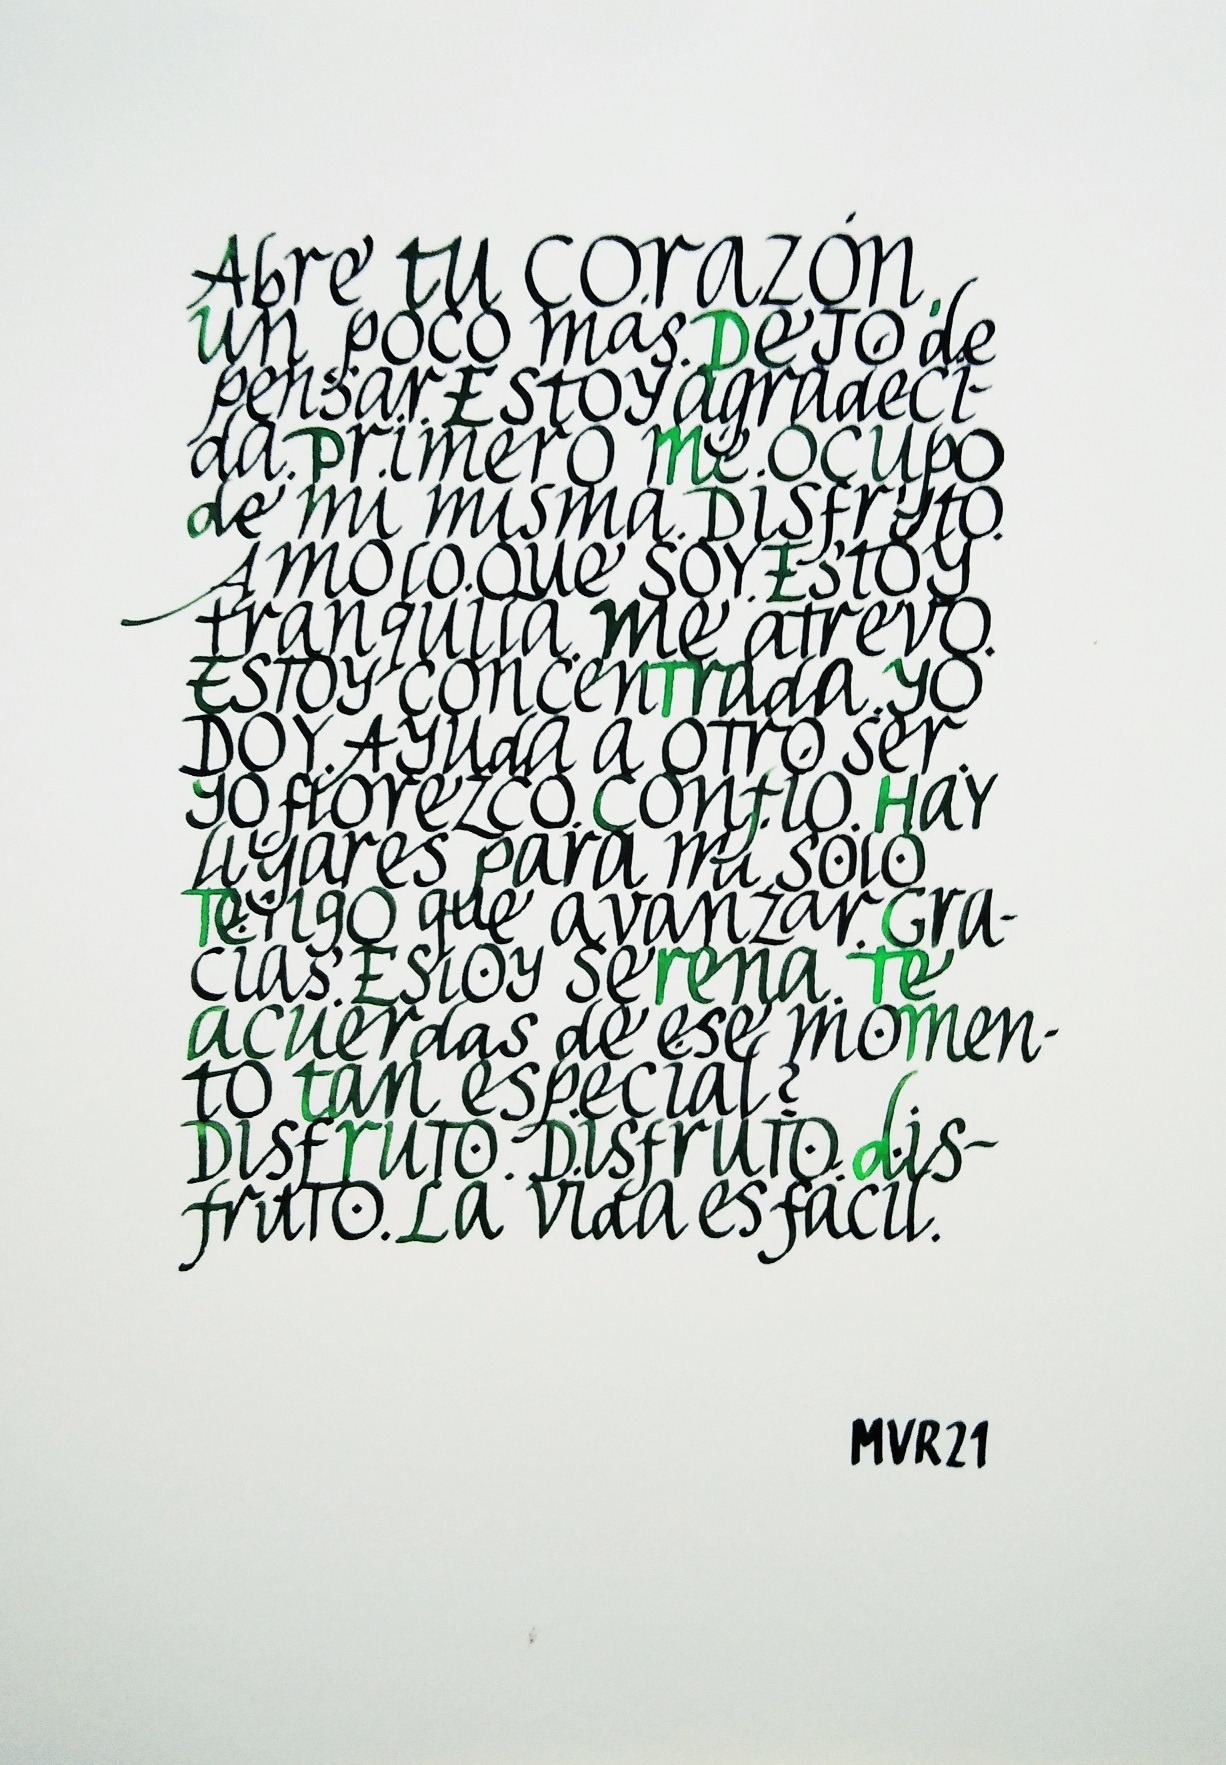 Abre tu corazón
un poco mas. Dejo de
pensar. Estoy agradeci-
da. Primero me ocupo
de mi misma. Disfruto.
Amo lo que soy. Estoy
tranquila. Me atrevo.
Estoy concentrada. Yo
Doy. Ayuda a otro ser.
Yo florezco. Confio. Hay
lugares para mi solo
Tengo que avanzar. Gra-
cias. Estoy serena. Te
acuerdas de ese momen-
to tan especial?
Disfruto. Disfruto. dis-
fruto. La vida es fácil.
MVR21